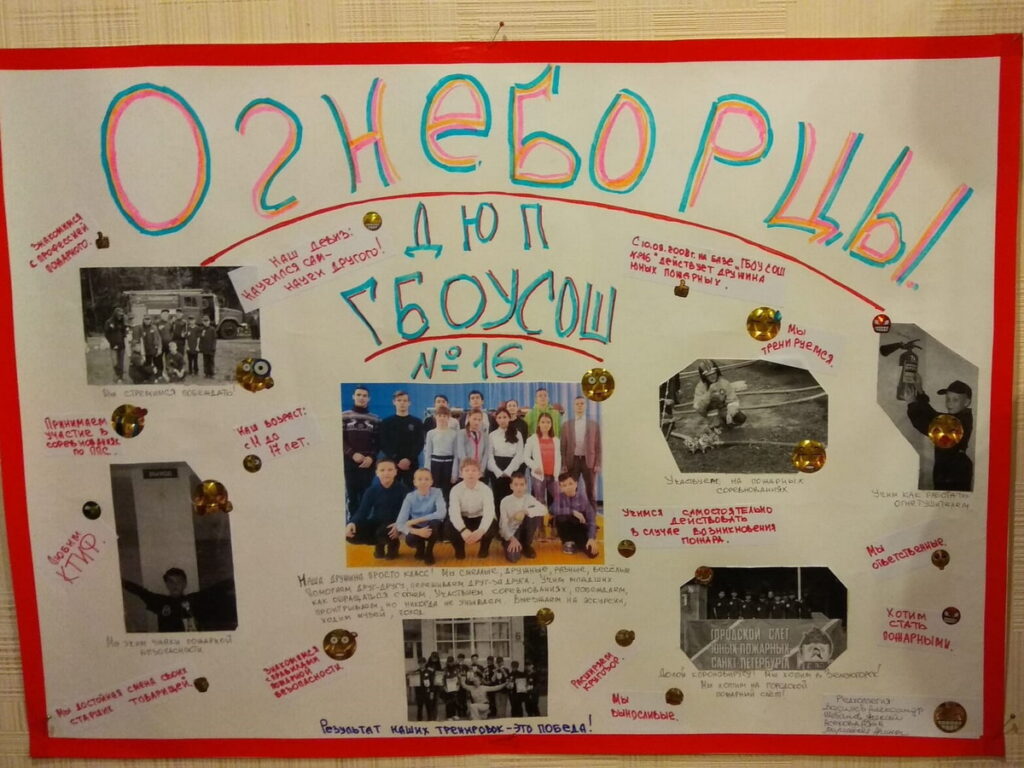 Огнеборцы
ДЮП
ГБОУСОШ
№16
Знакомимся
с профессией
пожарного.
Наш девиз:
Научился сам –
научи другого!
С 10.09.2008г. на базе „ГБОУ СОШ
№16" действует дружина
юных пожарных.
Мы
тренируемся.
Мы стремимся побеждать!
Принимаем
участие в
соревнованиях
по ППС.
Наш возраст:
с 11 до
17 лет.
Участвуем на пожарных
соревнованиях
Учим как работать
огнетушителем
Учимся самостоятельно
действовать
в случае возникновения
пожара.
Любим
КТИФ.
Мы ответственные.
Наша дружина просто класс! Мы смелые, дружные, разные, весёлые
Помогаем друг-другу, переживаем друг-за друга. Учим младших
как обращаться с огнём. Участвуем соревнованиях, побеждаем,
проигрываем, но никогда не унываем. Выезжаем на экскурсии,
ходим музей, поход
Мы учим знаки пожарной
безопасности
ГОРОДСКОЙ СЛЕТ
ЮНЫХ ПОЖАРНЫХ
САНКТ-ПЕТЕРБУРГА
Хотим
стать
пожарными.
Мы достойная смена своих
старших товарищей.
Знакомимся
с правилами
пожарной
безопасности
Расширяем
кругозор.
Долой коронавирус! Мы хотим в Зеленогорск!
Мы хотим на городской
пожарный слёт!
Мы
выносливые.
Результат наших тренировок – это победа!
Редколлегия:
Александр